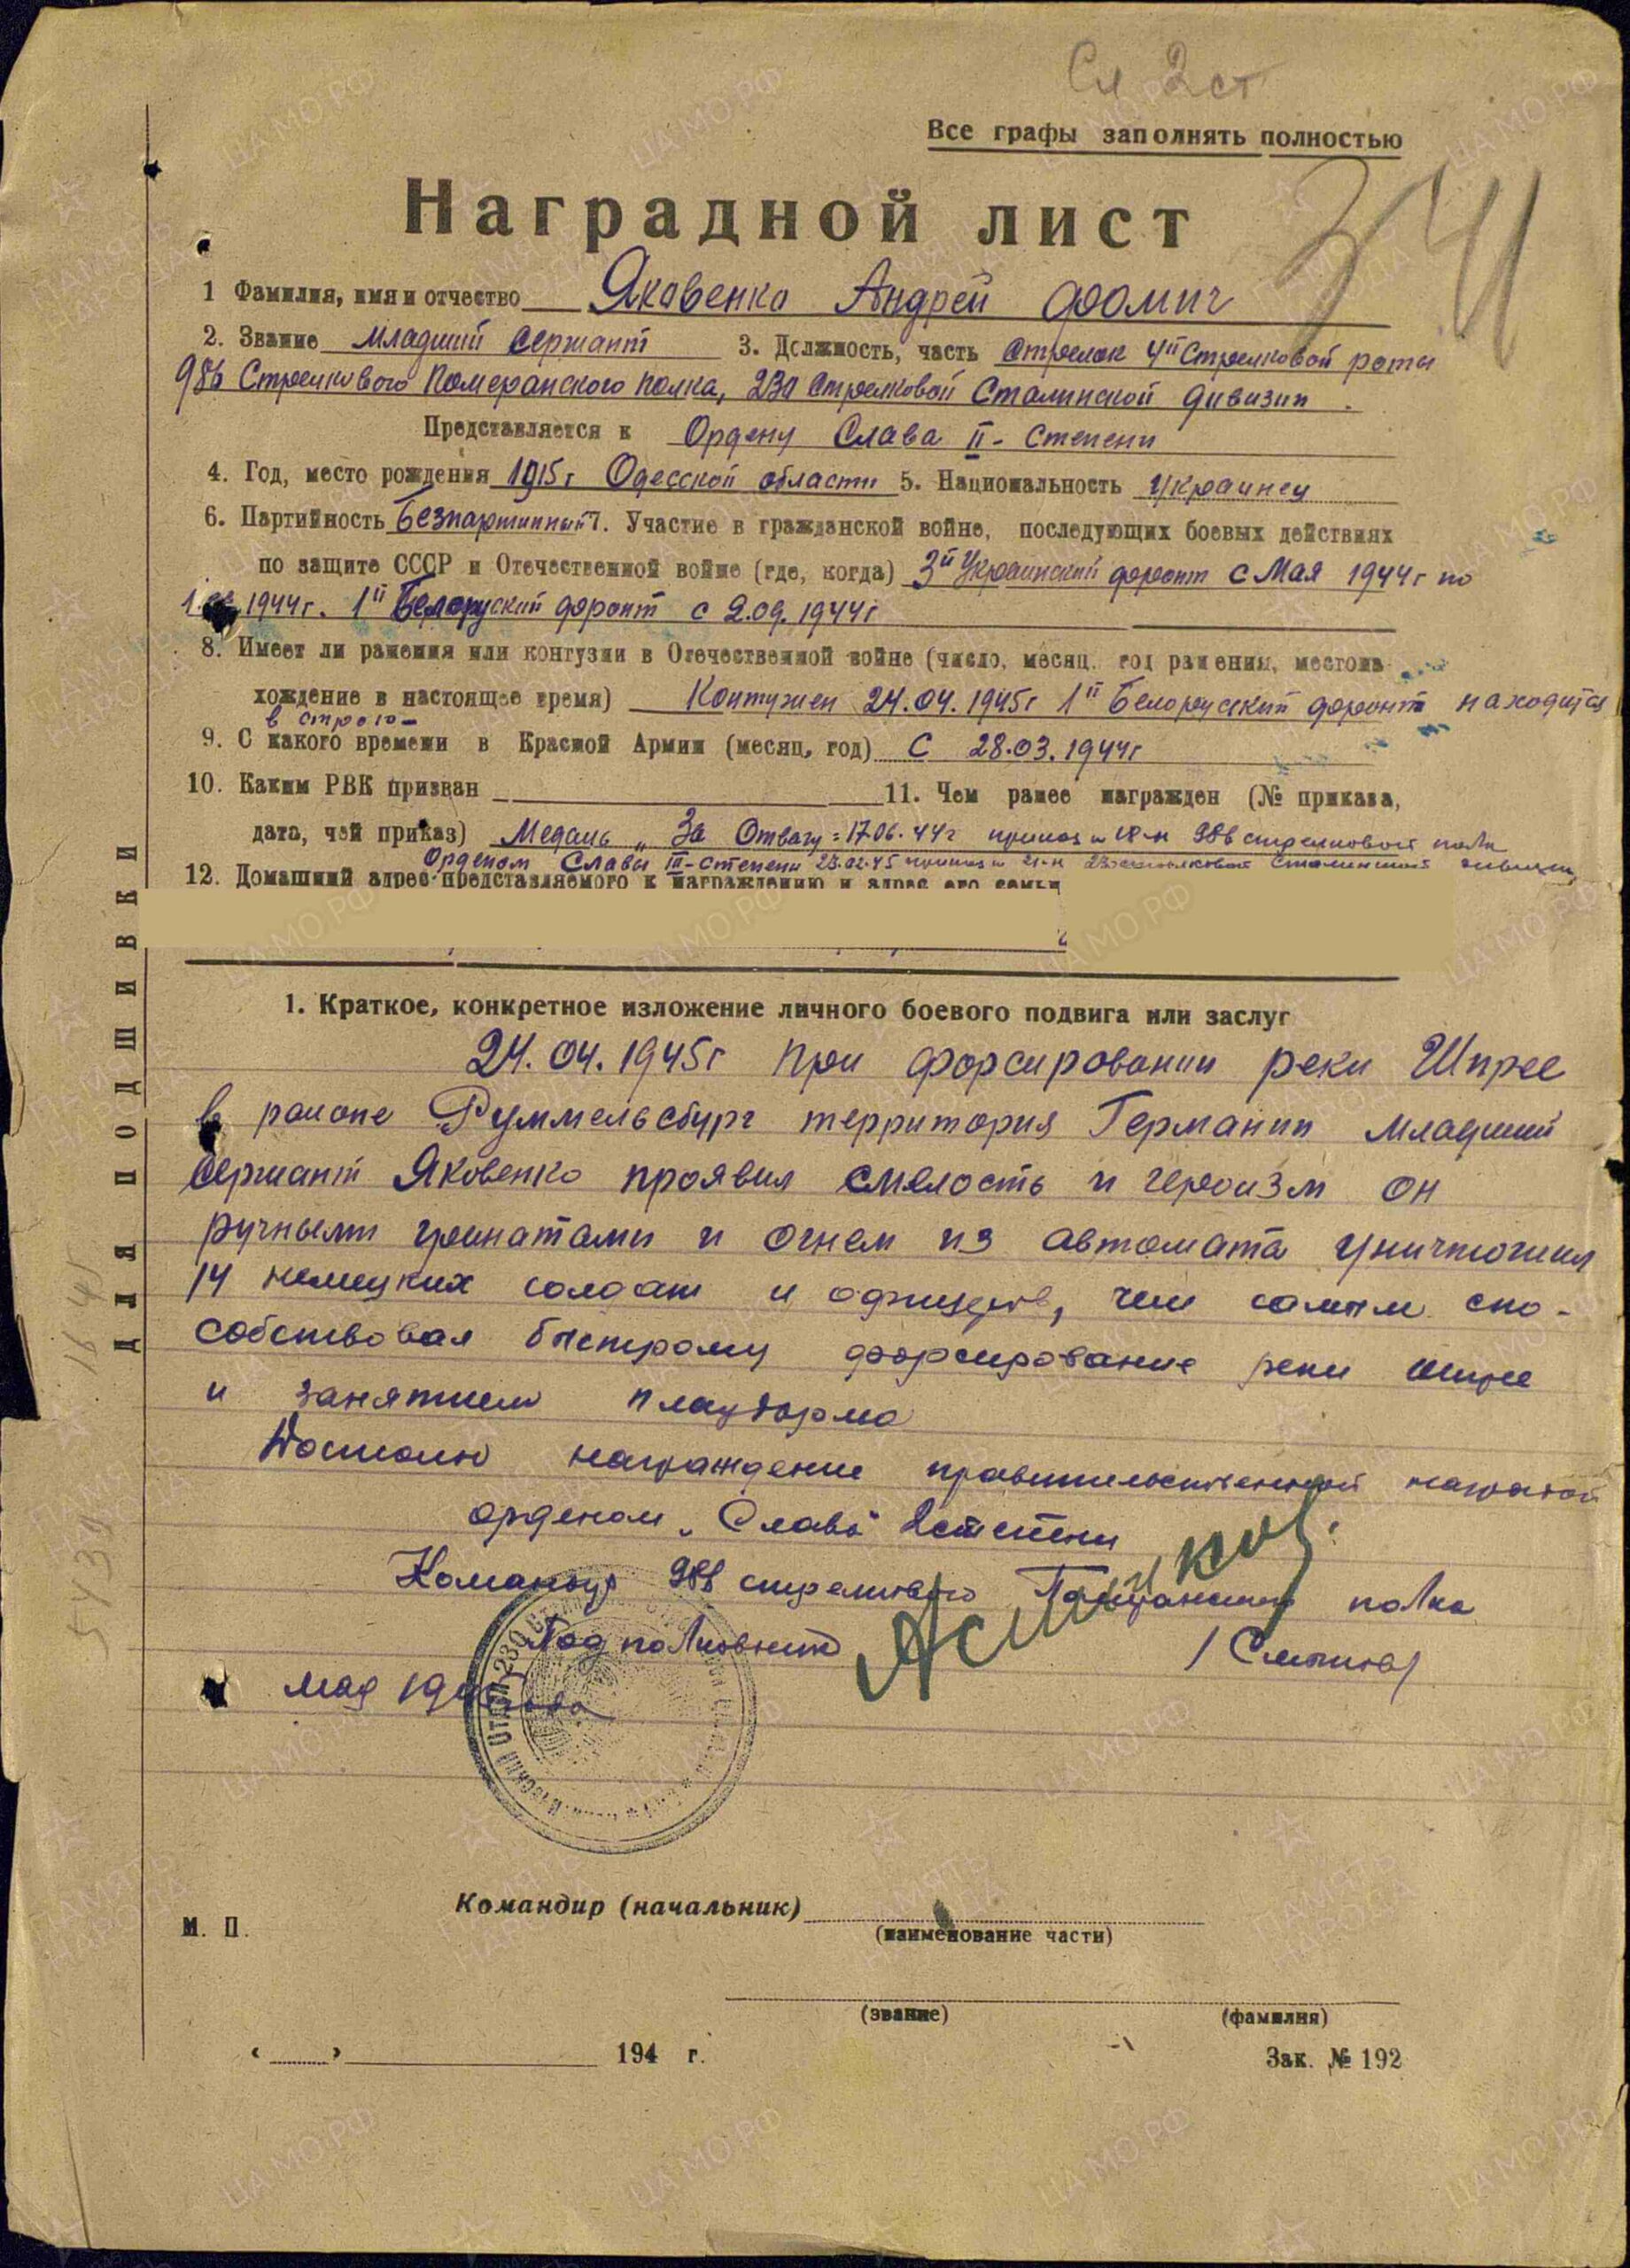 Сл 2 ст
Все графы заполнять полностью
Наградной лист
1 Фамилия, имя и отчество Яковенко Андрей Фомич
2. Звание младший сержант 3. Должность, часть стрелок 4й стрелковой роты
986 Стрелкового Померанского полка, 230 стрелковой Сталинской дивизии.
Представляется к Ордену Слава II - степени
4. Год, место рождения 1915г Одесской области 5. Национальность украинец
6. Партийность Безпартийный 7. Участие в гражданской войне, последующих боевых действиях
по защите СССР и Отечественной войне (где, когда) 3й Украинский фронт с Мая 1944г по
1944г. 1й Белоруский фронт с 2.09.1944г
8. Имеет ли ранения или контузии в Отечественной войне (число, месяц, год ранения, местона
хождение в настоящее время) Контужен 24.04.1945г 1й Белоруский фронт находится
в строю -
9. С какого времени в Красной Армии (месяц, год) С 28.03.1944г
10. Каким РВК призван 11. Чем ранее награжден (№ приказа,
дата, чей приказ) Медаль „За Отвагу" 17.06.44г приказ 986 стрелковой полк
Орденом Славы III - степени 23.02.45 приказ 230 стрелковой Сталинской дивизии
12. Домашний адрес представляемого к награждению и адрес его семьи
1. Краткое, конкретное изложение личного боевого подвига или заслуг
24.04.1945г при форсировании реки Шпрее
в районе Руммельсбург территория Германии младший
сержант Яковенко проявил смелость и героизм он
ручными гранатами и огнем из автомата уничтожил
14 немецких солдат и офицеров, чем самым спо-
собствовал быстрому форсирование реки Шпрее
и занятием плацдарма
Достоин награждение правительственной наградой
орденом „Слава" 2 степени
Командир 986 стрелкового Померанского полка
Подполковник /Смыков/
мая 1945 года
М. П.
Командир (начальник)
(наименование части)
(звание) (фамилия)
« » 194 г.
Зак. № 192
ДЛЯ ПОДШИВКИ
ЦАМО.РФ
ПАМЯТЬ НАРОДА